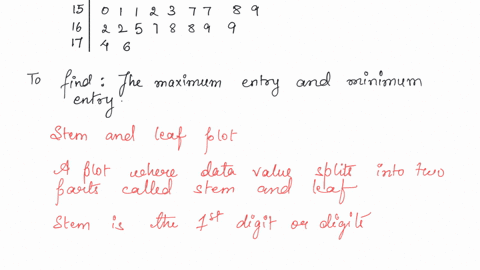 15 | 0 1 1 2 3 7 7 8 9
16 | 2 2 5 7 8 8 9 9
17 | 4 6
To find: The maximum entry and minimum
entry.
Stem and leaf plot
A plot where data value splits into two
parts called stem and leaf
Stem is the 1st digit or digits